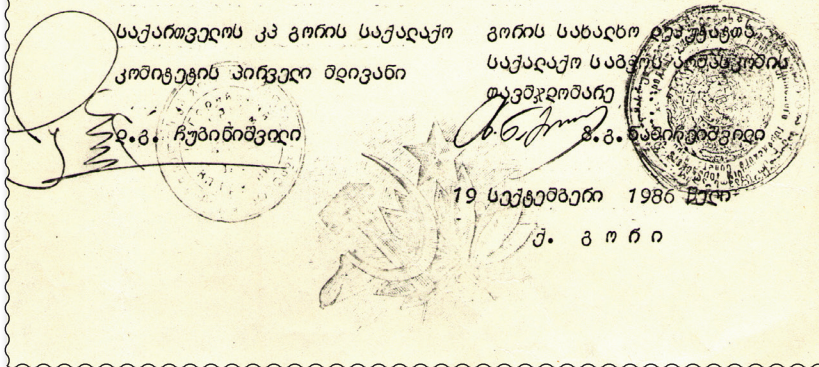 საქართველოს კპ გორის საქალაქო
კომიტეტის პირველი მდივანი
გ. ჩუბინიშვილი
გორის სახალხო დეპუტატთა
საქალაქო საბჭოს აღმასკომის
თავმჯდომარე
19 სექტემბერი 1986 წელი
ქ. გორი